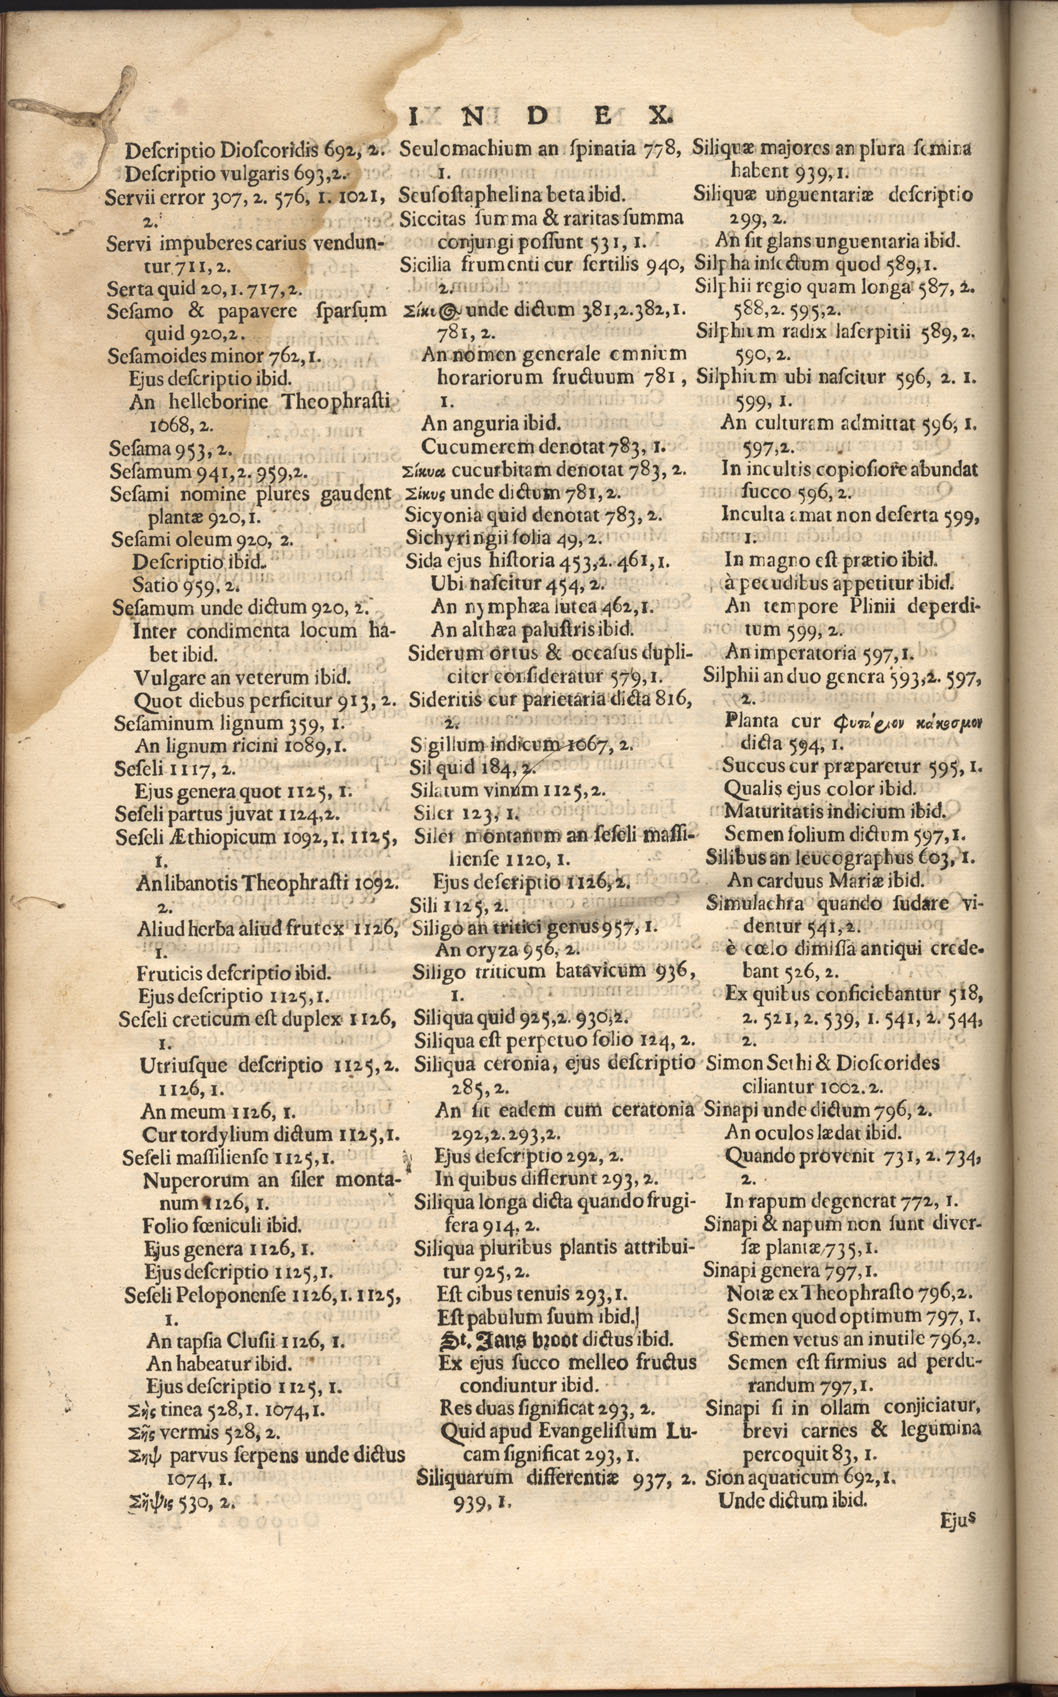 I N D E X.
Deſcriptio Dioſcoridis 692, 2.
Deſcriptio vulgaris 693,2.
Servii error 307, 2. 576, 1. 1021,
2.
Servi impuberes carius vendun-
tur 711, 2.
Serta quid 20, 1. 717, 2.
Seſamo & papavere ſparſum
quid 920,2.
Seſamoides minor 762, 1.
Ejus deſcriptio ibid.
An helleborine Theophraſti
1068, 2.
Seſama 953, 2.
Seſamum 941, 2. 959,2.
Seſami nomine plures gaudent
plantæ 920, 1.
Seſami oleum 920, 2.
Deſcriptio ibid.
Satio 959, 2.
Seſamum unde dictum 920, 2.
Inter condimenta locum ha-
bet ibid.
Vulgare an veterum ibid.
Quot diebus perficitur 913, 2.
Seſaminum lignum 359, 1.
An lignum ricini 1089,1.
Seſeli 1117, 2.
Ejus genera quot 1125, 1.
Seſeli partus juvat 1124,2.
Seſeli Æthiopicum 1092, 1. 1125,
1.
An libanotis Theophraſti 1092.
2.
Aliud herba aliud frutex 1126,
1.
Fruticis deſcriptio ibid.
Ejus deſcriptio 1125, 1.
Seſeli creticum eſt duplex 1126,
1.
Utriuſque deſcriptio 1125, 2.
1126, 1.
An meum 1126, 1.
Cur tordylium dictum 1125,1.
Seſeli maſſilienſe 1125, 1.
Nuperorum an ſiler monta-
num 1126, 1.
Folio fœniculi ibid.
Ejus genera 1126, 1.
Ejus deſcriptio 1125, 1.
Seſeli Peloponenſe 1126, 1. 1125,
1.
An tapſia Cluſii 1126, 1.
An habeatur ibid.
Ejus deſcriptio 1125, 1.
Σὴς tinea 528, 1. 1074, 1.
Σῆς vermis 528, 2.
Σηψ parvus ſerpens unde dictus
1074, 1.
Σῆψις 530, 2.
Seulomachium an ſpinatia 778,
1.
Seuſoſtaphelina beta ibid.
Siccitas ſumma & raritas ſumma
conjungi poſſunt 531, 1.
Sicilia frumenti cur fertilis 940,
2.
Σίκυ unde dictum 381,2.382,1.
781, 2.
An nomen generale omnium
horariorum fructuum 781,
1.
An anguria ibid.
Cucumerem denotat 783, 1.
Σίκυα cucurbitam denotat 783, 2.
Σίκυς unde dictum 781, 2.
Sicyonia quid denotat 783, 2.
Sichyringii folia 49, 2.
Sida ejus hiſtoria 453,2. 461, 1.
Ubi naſcitur 454, 2.
An nymphæa lutea 462, 1.
An althæa paluſtris ibid.
Siderum ortus & occaſus dupli-
citer conſideratur 579, 1.
Sideritis cur parietaria dicta 816,
2.
Sigillum indicum 1067, 2.
Sil quid 184, 2.
Silatum vinum 1125, 2.
Siler 123, 1.
Siler montanum an ſeſeli maſſi-
lienſe 1120, 1.
Ejus deſcriptio 1126, 2.
Sili 1125, 2.
Siligo an tritici genus 957, 1.
An oryza 956, 2.
Siligo triticum batavicum 936,
1.
Siliqua quid 925,2. 930,2.
Siliqua eſt perpetuo folio 124, 2.
Siliqua ceronia, ejus deſcriptio
285, 2.
An ſit eadem cum ceratonia
292, 2. 293, 2.
Ejus deſcriptio 292, 2.
In quibus differunt 293, 2.
Siliqua longa dicta quando frugi-
fera 914, 2.
Siliqua pluribus plantis attribui-
tur 925, 2.
Eſt cibus tenuis 293, 1.
Eſt pabulum ſuum ibid.
St. Jans broot dictus ibid.
Ex ejus ſucco melleo fructus
condiuntur ibid.
Res duas ſignificat 293, 2.
Quid apud Evangeliſtum Lu-
cam ſignificat 293, 1.
Siliquarum differentiæ 937, 2.
939, 1.
Siliquæ majores an plura ſemina
habent 939, 1.
Siliquæ unguentariæ deſcriptio
299, 2.
An ſit glans unguentaria ibid.
Silpha inſectum quod 589, 1.
Silphii regio quam longa 587, 2.
588, 2. 595, 2.
Silphium radix laſerpitii 589, 2.
590, 2.
Silphium ubi naſcitur 596, 2. 1.
599, 1.
An culturam admittat 596, 1.
597,2.
In incultis copioſiore abundat
ſucco 596, 2.
Inculta amat non deſerta 599,
1.
In magno eſt prætio ibid.
à pecudibus appetitur ibid.
An tempore Plinii deperdi-
tum 599, 2.
An imperatoria 597, 1.
Silphii an duo genera 593, 2. 597,
2.
Planta cur φυτάριον κάκοσμον
dicta 594, 1.
Succus cur præparetur 595, 1.
Qualis ejus color ibid.
Maturitatis indicium ibid.
Semen folium dictum 597, 1.
Silibus an leucographus 603, 1.
An carduus Mariæ ibid.
Simulachra quando ſudare vi-
dentur 541, 2.
è cœlo dimiſſa antiqui crede-
bant 526, 2.
Ex quibus conficiebantur 518,
2. 521, 2. 539, 1. 541, 2. 544,
2.
Simon Sethi & Dioſcorides
ciliantur 1002. 2.
Sinapi unde dictum 796, 2.
An oculos lædat ibid.
Quando provenit 731, 2. 734,
2.
In rapum degenerat 772, 1.
Sinapi & napum non ſunt diver-
ſæ plantæ 735, 1.
Sinapi genera 797, 1.
Notæ ex Theophraſto 796, 2.
Semen quod optimum 797, 1.
Semen vetus an inutile 796,2.
Semen eſt firmius ad perdu-
randum 797, 1.
Sinapi ſi in ollam conjiciatur,
brevi carnes & legumina
percoquit 83, 1.
Sion aquaticum 692, 1.
Unde dictum ibid.
Ejus